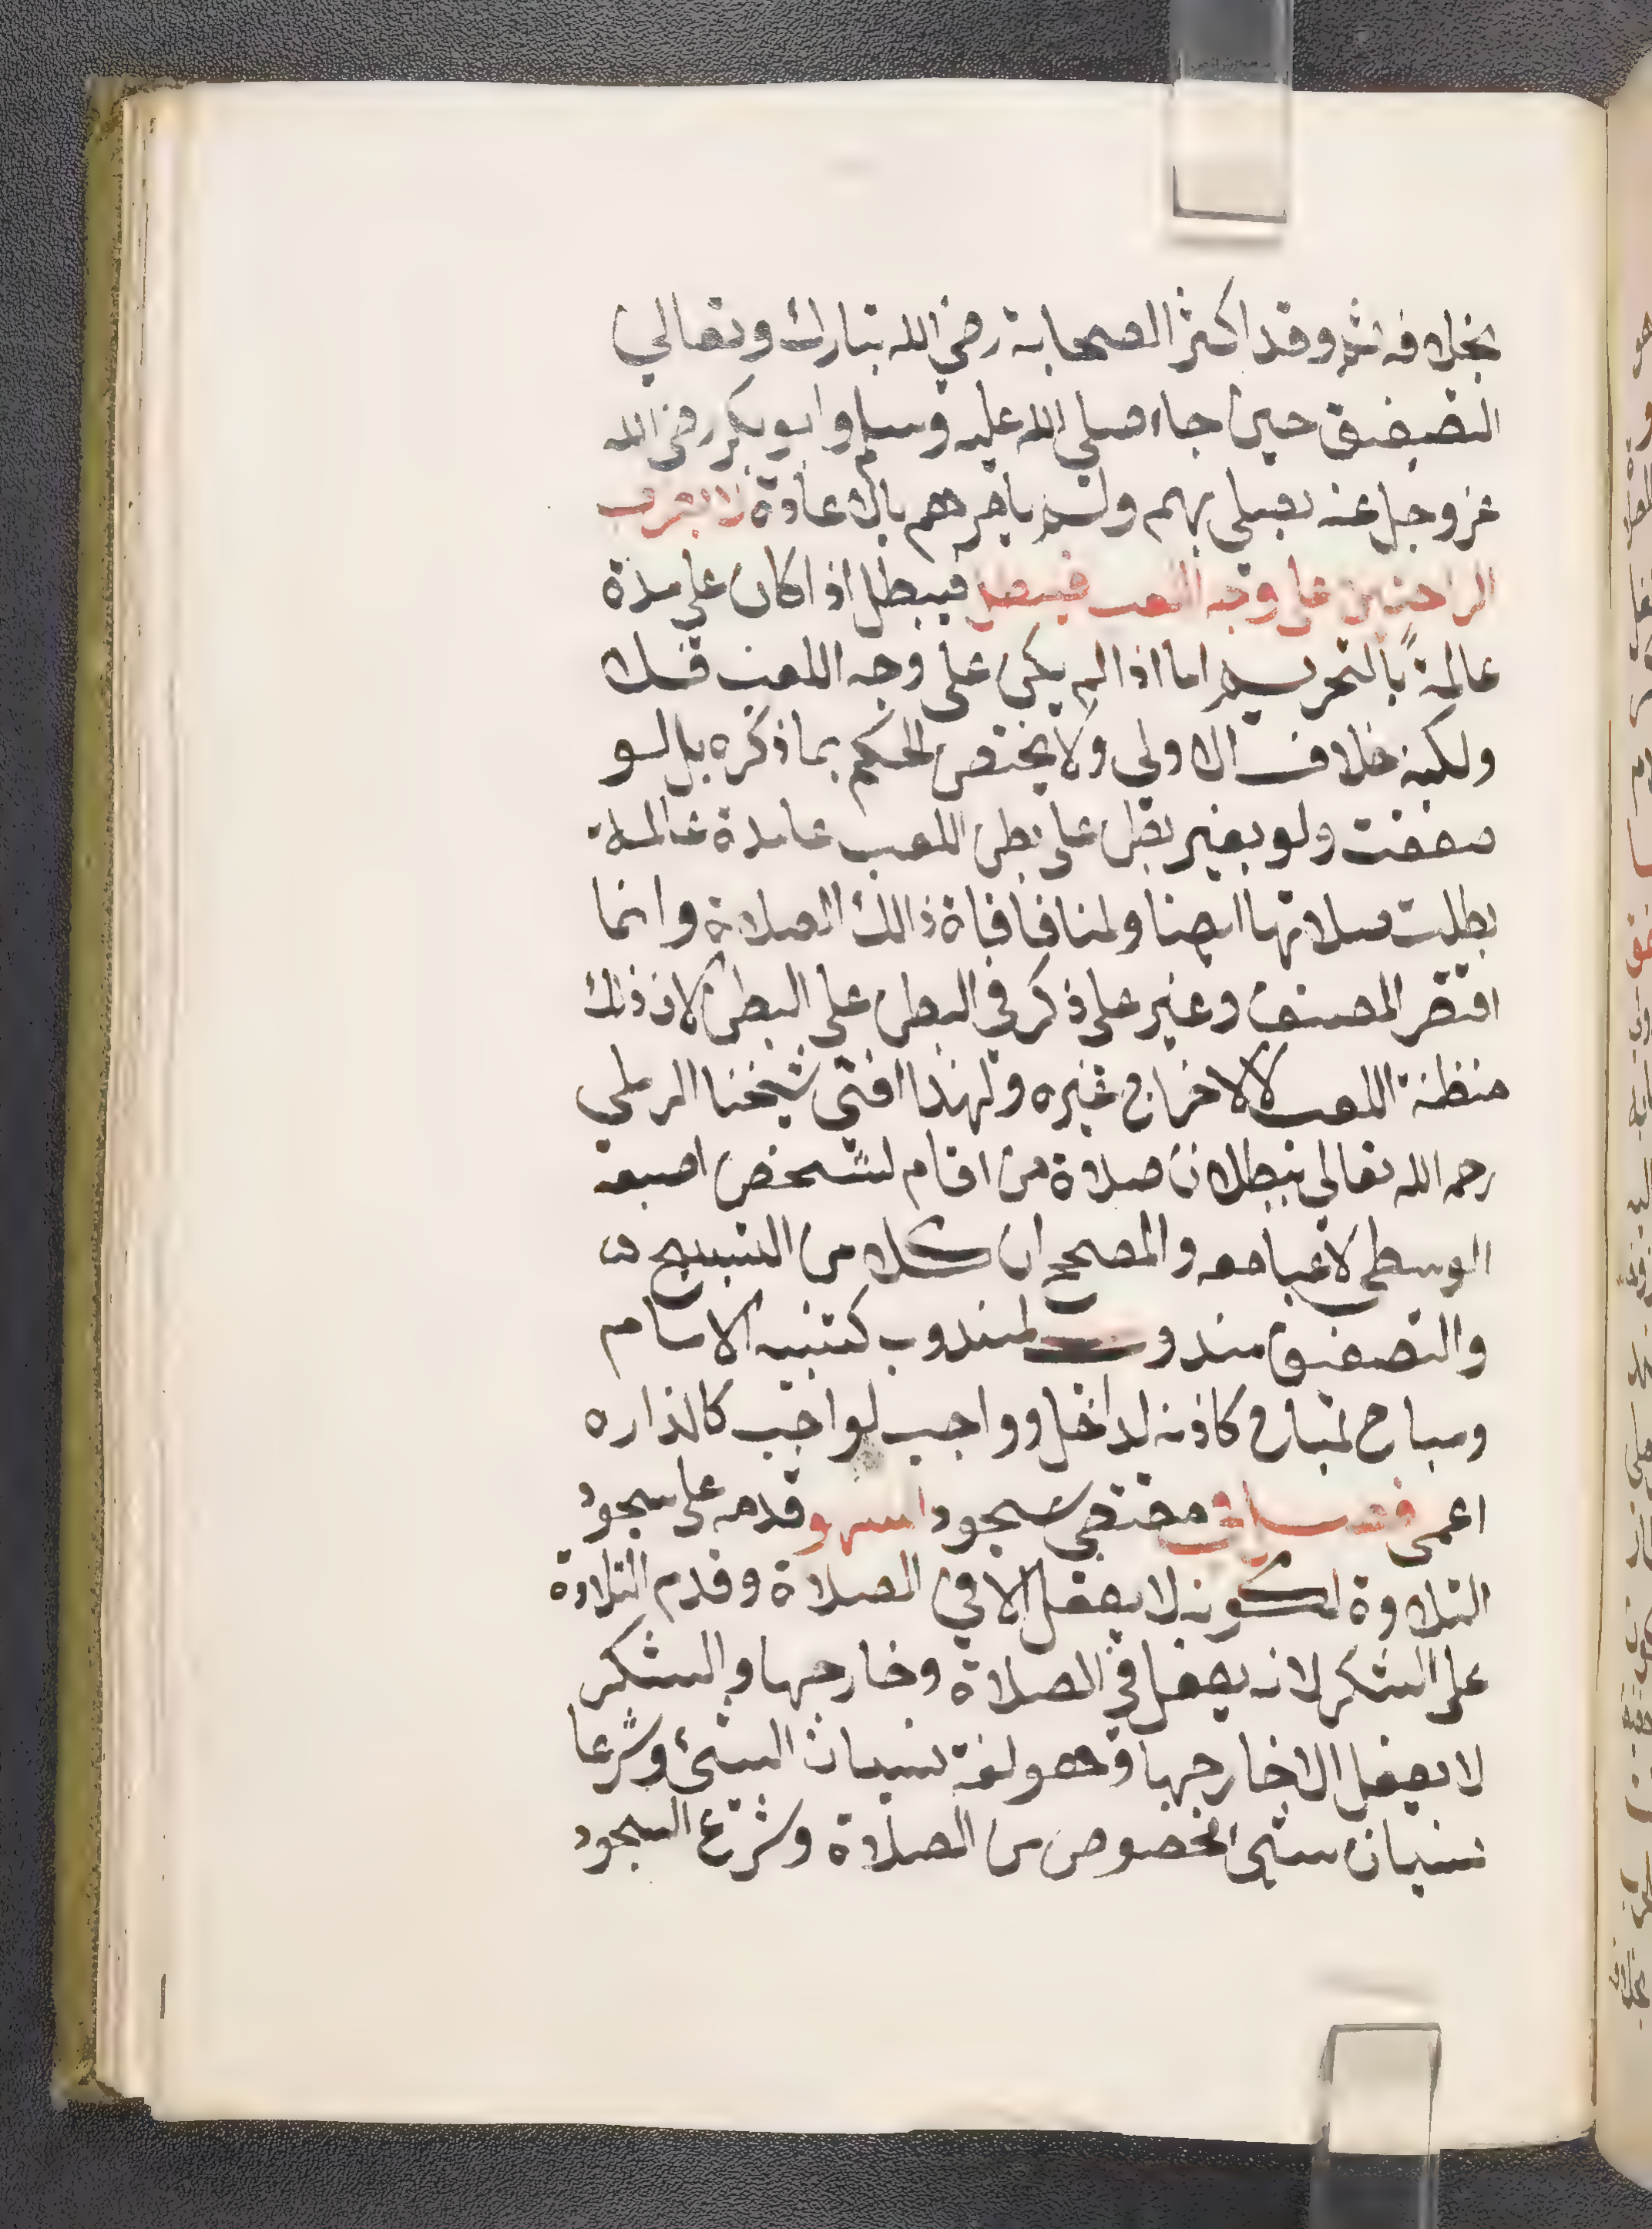 بخلافه ثم وقد اكثر الصحابة رضي الله تبارك وتعالي
التصفيق حين جاء صلي الله عليه وسلم وابو بكر رضي الله
عز وجل عنه يصلي بهم ولم يامرهم بالاعادة لا بضرب
الراحتين علي وجه اللعب فيبطل فيبطل اذا كان عامدة
عالمة بالتحريم اما اذا لم يكن علي وجه اللعب فلا
ولكنه خلاف الاولي ولا يختص الحكم بما ذكره بل لو
صفقت ولو بغير بطن علي بطن اللعب عامدة عالمة
بطلت صلاتها ايضا ولمنافافاة ذالك الصلاة وانما
اقتصر المصنف وغير علي ذكر في البطن علي البطن لان ذلك
منظنة اللعب لا لاخراج غيره ولهذا افتي شيخنا الرملي
رحمه الله تعالي ببطلان صلاة من اقام لشخص اصبعه
الوسطي لاعبا معه والمصحح ان كلا من التسبيح
والتصفيق مندوب لمندوب كتنبيه الامام
ومباح لمباح كاذنه لداخل وواجب لواجب كالنذاره
اعمي فصل في مقتضي سجود السهو قدمه علي سجود
التلاوة لكونه لا يفعل الا في الصلاة وقدم التلاوة
علي الشكر لانه يفعل في الصلاة وخارجها والشكر
لا يفعل الا خارجها وهو لغة نسيان الشئ وشرعا
نسيان شئ مخصوص من الصلاة وشرع السجود